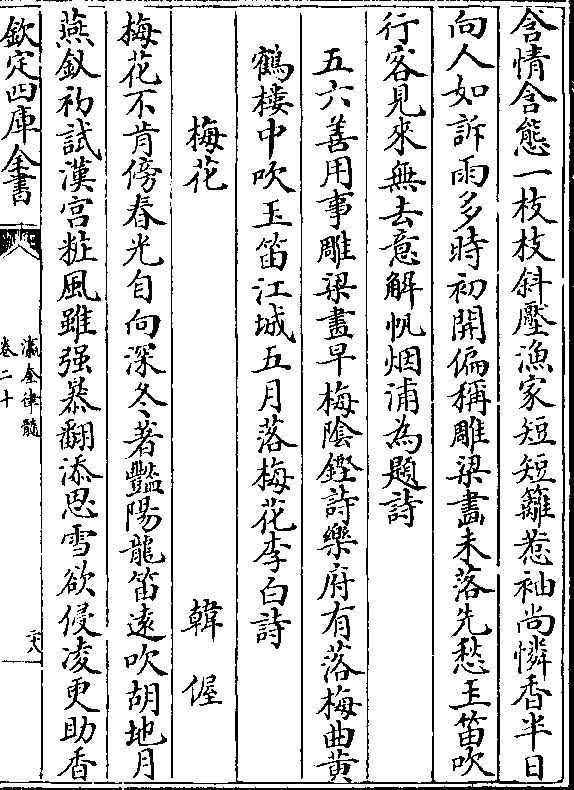 含情含態一枝枝斜壓漁家短短籬惹袖尚憐香半日
向人如訴雨多時初開偏稱雕梁畫未落先愁玉笛吹
行客見來無去意解帆烟浦為題詩
五六善用事雕梁畫早梅陰鏗詩樂府有落梅曲黄
鶴樓中吹玉笛江城五月落梅花李白詩
梅花　韓偓
梅花不肯傍春光自向深冬著豔陽龍笛逺吹胡地月
燕釵初試漢宫粧風雖强暴翻添思雪欲侵凌更助香
欽定四庫全書
瀛奎律髓
卷二十
二八